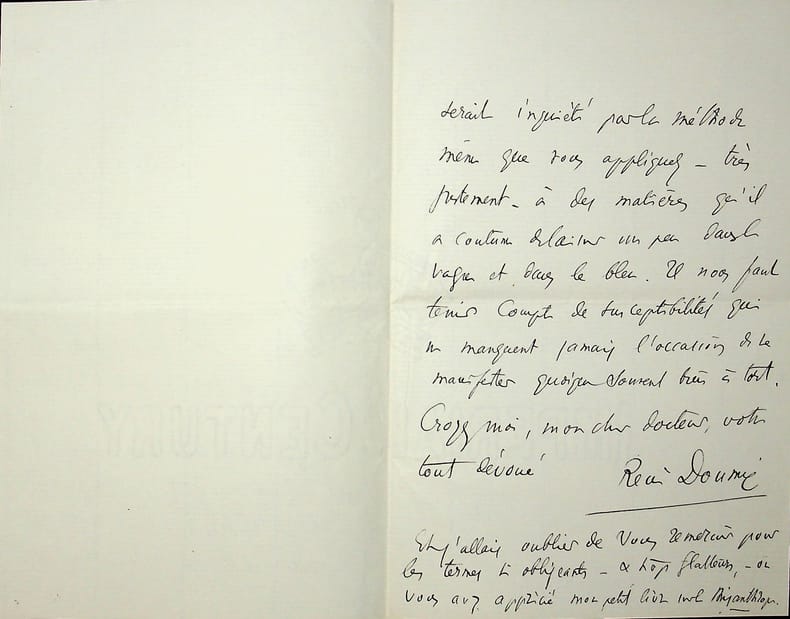 serait inquiété par la méthode
même que vous appliquez – très
justement – à des matières qu'il
a coutume de laisser un peu dans le
vague et dans le bleu. Il nous faut
tenir compte de susceptibilités qui
ne manquent jamais l'occasion de se
manifester quoique souvent bien à tort.
Croyez moi, mon cher docteur, votre
tout dévoué
René Doumic
Et j'allais oublier de vous remercier pour
les termes si obligeants – & trop flatteurs, – où
vous avez apprécié mon petit livre sur le Misanthrope.
CENTURY